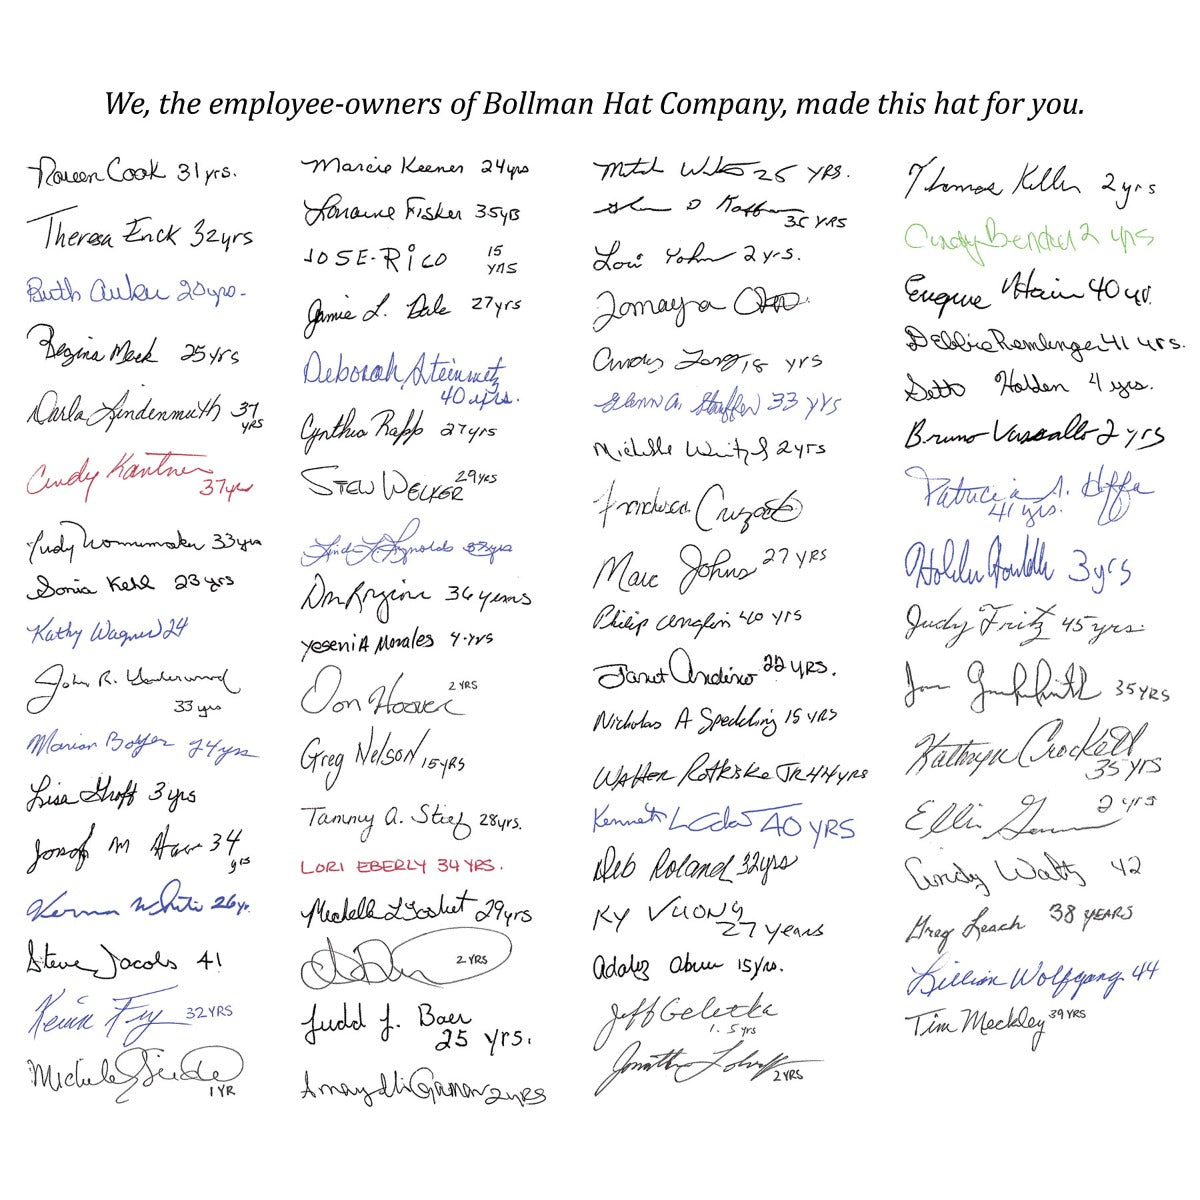 We, the employee-owners of Bollman Hat Company, made this hat for you.
Cook 31 yrs.
Theresa Enck 32yrs
Ruth Auker 20yrs.
Regina Meck 25 yrs
Darla Lindenmuth 37
yrs
Cindy Kantner
37yrs
Judy Wonnemaker 33yrs
Sonia Kehl 23 yrs
Kathy Wagner 24
John R. Underwood
33 yrs
Marian Boyer 24yrs
Lisa Groff 3 yrs
Josef M 34
yrs
White 26yr.
Steve Jacobs 41
Kevin Fry 32 YRS
Michele
1 YR
Marcie Keener 24yrs
Lorraine Fisher 35yrs
JOSE-RICO 15
YRS
Jamie L. Dale 27yrs
Deborah Steinmetz
40 yrs.
Cynthia Rapp 27yrs
STEW WELKER 29YRS
Linda L. Reynolds yrs
36 years
YeseniA Morales 4-yrs
Don Hoover 2 YRS
Greg Nelson 15YRS
Tammy A. Stief 28yrs.
LORI EBERLY 34 YRS.
Mechelle 29yrs
2 YRS
Judd J. Baer
25 yrs.
2 YRS
Mitch 25 YRS.
D Hoffman
35 YRS
Lori Yohn 2 yrs.
Tomaya
Cindy Long 18 yrs
Glenn A. Stauffer 33 yrs
Michelle 2yrs
Francheska
Marc Johns 27 YRS
Philip 40 yrs
Janet Andino 22 YRS.
Nicholas A Spedding 15 YRS
Walter Rotkiske JR 44 YRS
Kenneth L 40 YRS
Deb Roland 32yrs
KY VUONG
27 years
15 yrs.
Jeff Geletka
1.5 yrs
Jonathan
2 YRS
Thomas Keller 2 yrs
Cindy Bender 2 yrs
Eugene Hain 40 yr.
Debbie Remlinger 41 yrs.
Seth Holden 4 yrs.
Bruno Vassallo 2 yrs
Patricia A.
41 yrs.
3 yrs
Judy Fritz 45 yrs.
35 YRS
Kathryn Crockett
35 YRS
2 yrs
Cindy Waltz 42
Greg Leach 38 YEARS
Lillian Wolfgang 44
Tim Meckley 39 YRS